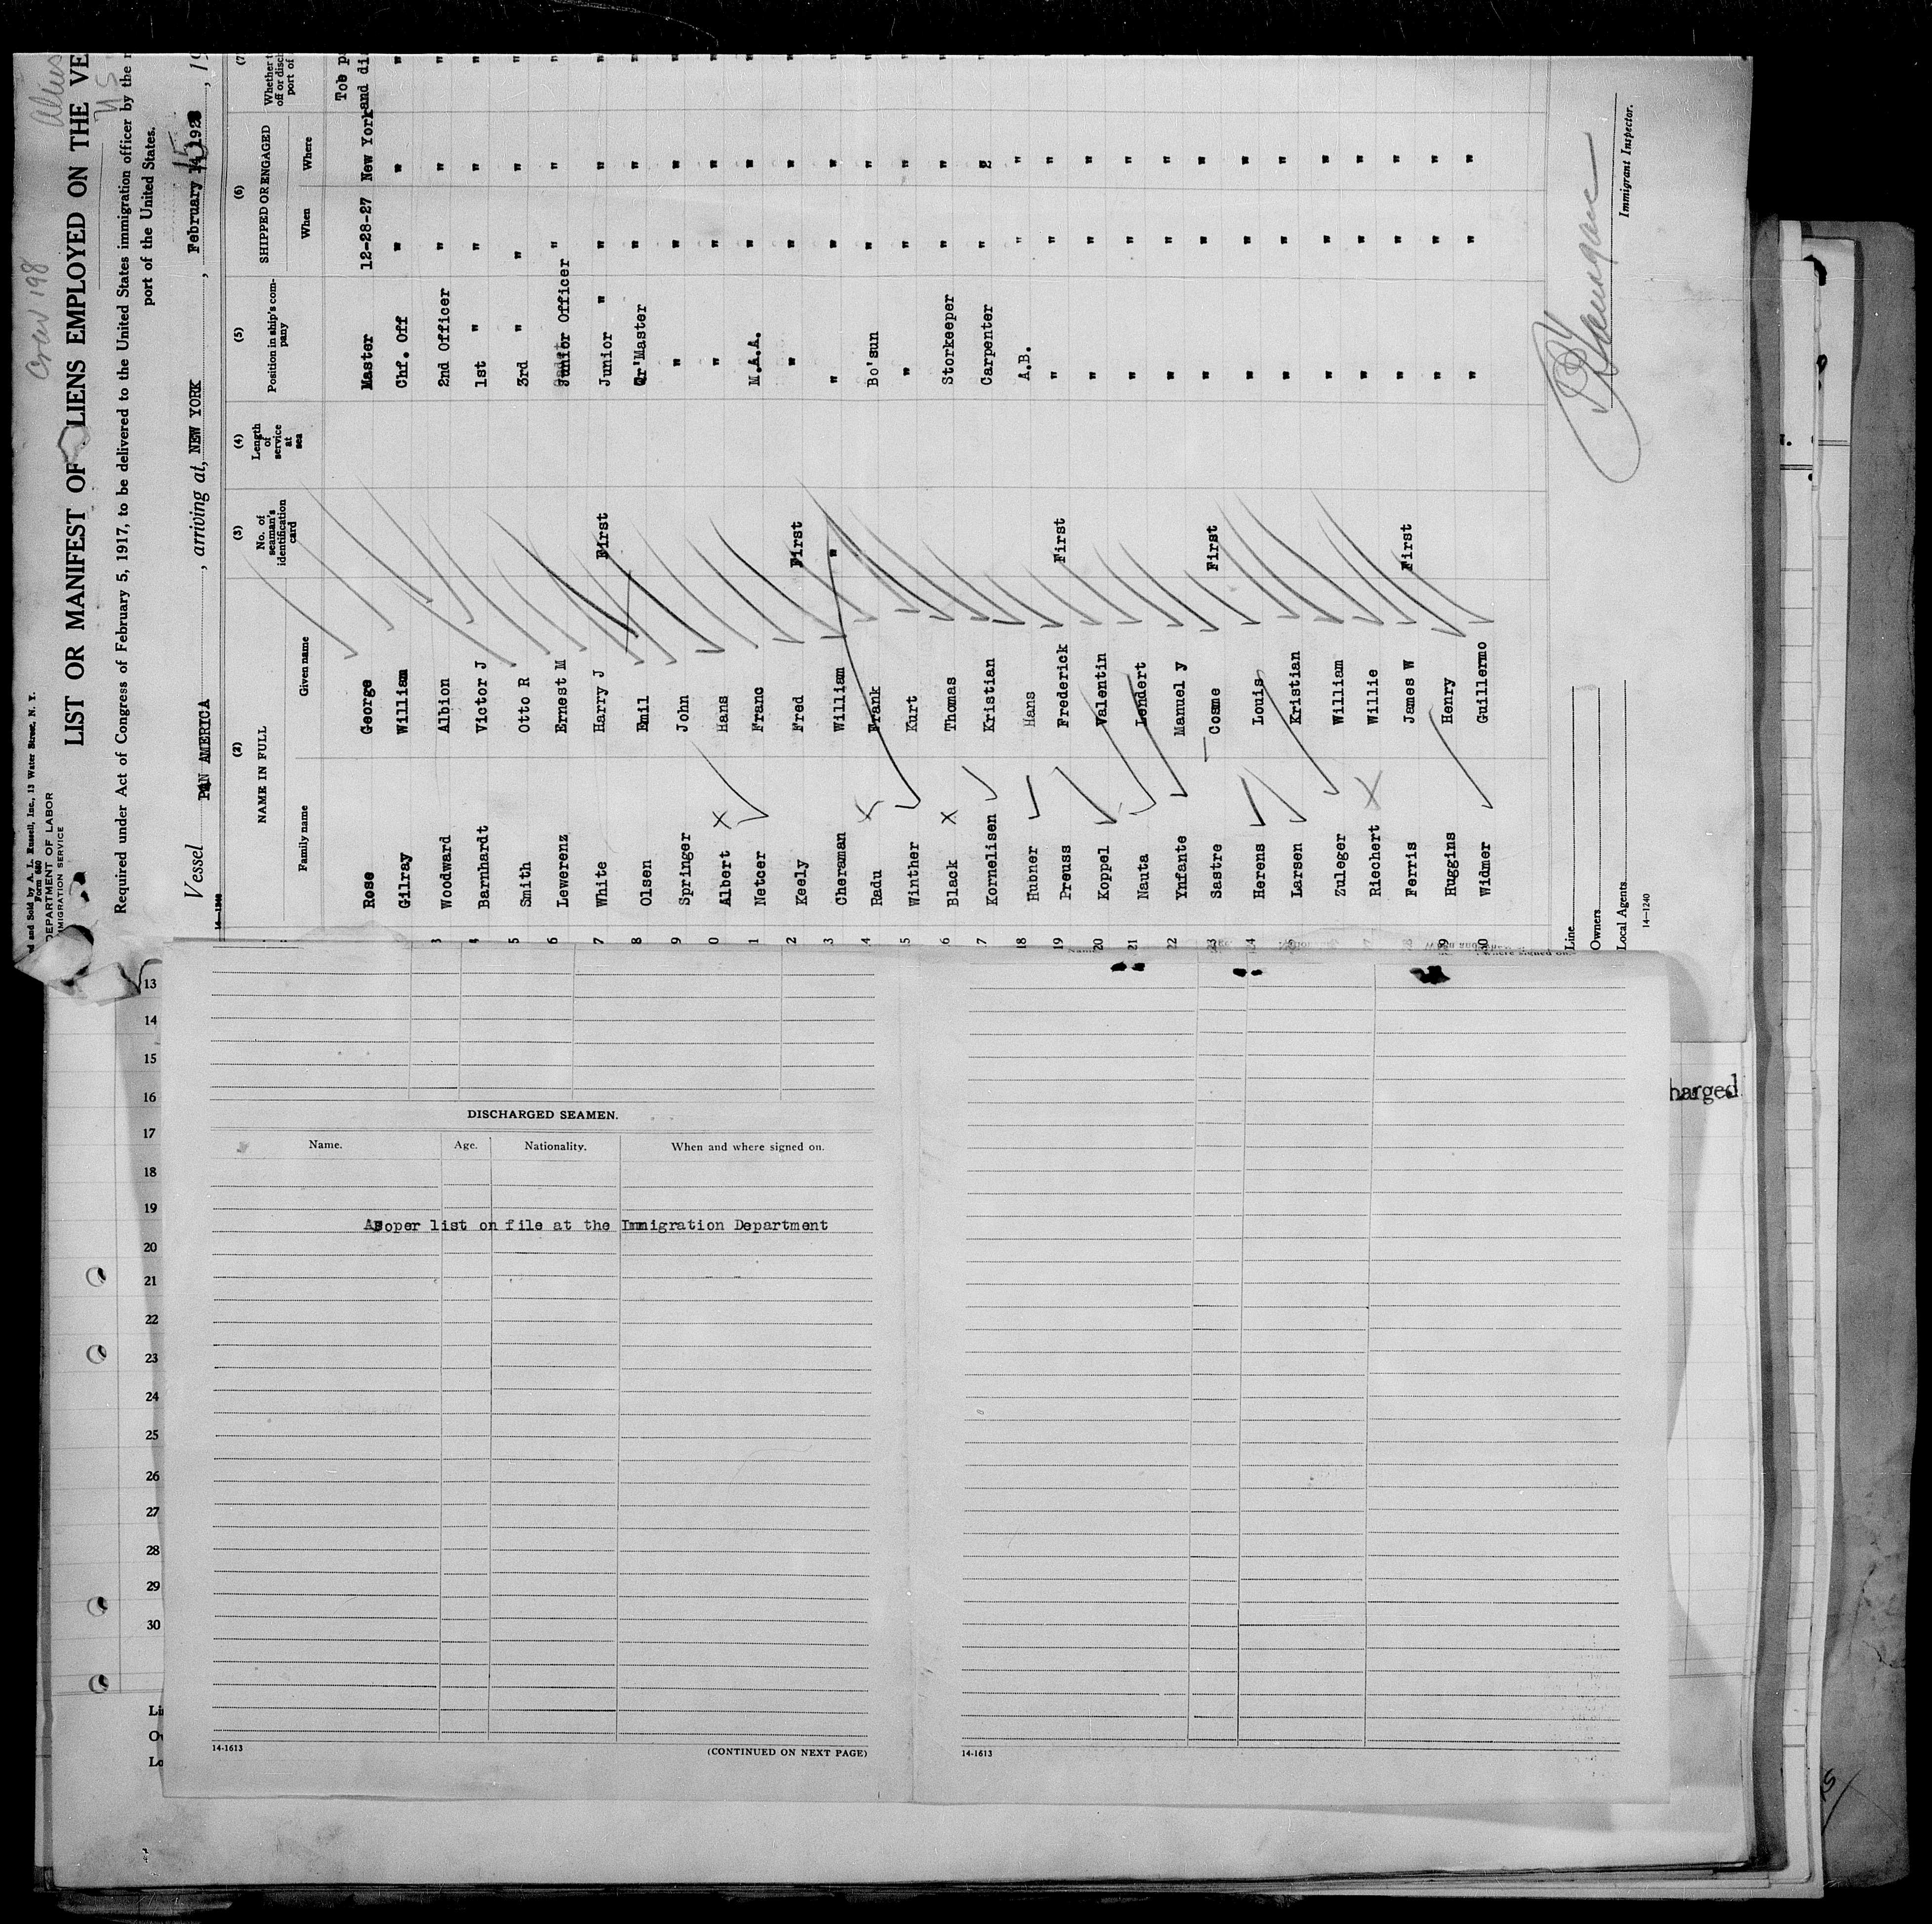 Crew 198
Aliens
U S
d and Sold by A. L. Russell, Inc., 13 Water Street, N. Y.
Form 680
DEPARTMENT OF LABOR
IMMIGRATION SERVICE
LIST OR MANIFEST OF LIENS EMPLOYED ON THE VE
Required under Act of Congress of February 5, 1917, to be delivered to the United States immigration officer by the r
port of the United States.
Vessel PAN AMERICA, arriving at, NEW YORK, February 15, 1928, 19
14-1240
(2) (3) (4) (5) (6) (7
NAME IN FULL No. of seaman's identification card Length of service at sea Position in ship's company SHIPPED OR ENGAGED Whether t off or disch port of
Family name Given name When Where
To be p
Rose George Master 12-28-27 New York and di
Gilroy William Chf. Off " " "
3 Woodward Albion 2nd Officer " " "
4 Barnhardt Victor J 1st " " " "
5 Smith Otto R 3rd " " " "
6 Lewerenz Ernest M Junior Officer " " "
7 White Harry J First Junior " " " "
8 Olsen Emil Qr'Master " " "
9 Springer John " " " "
0 Albert Hans " " " "
1 Netcer Franc M.A.A. " " "
2 Keely Fred First " " " "
3 Cheraman William " " " " "
4 Radu Frank Bo'sun " " "
5 Winther Kurt " " " "
6 Black Thomas Storkeeper " " "
7 Kornelisen Kristian Carpenter " " "
18 Hubner Hans A.B. " "
19 Preuss Frederick First " " "
20 Koppel Valentin " " "
21 Nauta Lendert " " "
22 Ynfante Manuel y " " "
23 Sastre Cosme First " " "
24 Herens Louis " " "
Larsen Kristian " " "
Zuleger William " " "
Riechert Willie " " "
Ferris James W First " " "
29 Huggins Henry " " "
30 Widmer Guillermo " " "
Line
Owners
Local Agents
14-1240
Immigrant Inspector.
13
14
15
16
17
18
19
20
21
22
23
24
25
26
27
28
29
30
Li
Ow
Lo
DISCHARGED SEAMEN.
Name. Age. Nationality. When and where signed on.
As per list on file at the Immigration Department
14-1613 (CONTINUED ON NEXT PAGE)
14-1613
harged